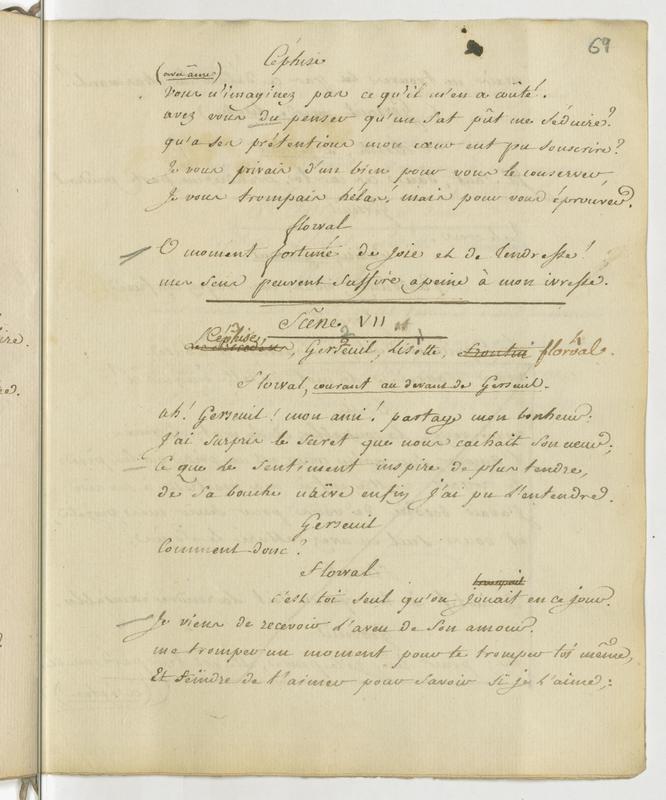 69
Céphise
(avec âme)
Vous n'imaginez pas ce qu'il m'en a coûté!
avez vous du penser qu'un fat pût me séduire?
qu'a ses prétentions mon cœur eut pu souscrire?
Je vous privais d'un bien pour vous le conserver
Je vous trompais hélas! mais pour vous éprouver.
florval
O moment fortuné de joie et de tendresse!
mes sens peuvent suffire, apeine à mon ivresse.
Scène VII
Céphise, Gerseuil, Lisette, frontin florval.
Florval, courant au devant de Gerseuil.
ah! Gerseuil! mon ami! partage mon bonheur;
J'ai surpris le secret que nous cachait son cœur;
Ce que le sentiment inspire de plus tendre,
de sa bouche naïve enfin j'ai pu l'entendre.
Gerseuil
Comment donc?
Florval
trompait
c'est toi seul qu'on jouait en ce jour.
Je viens de recevoir l'aveu de son amour.
me tromper un moment pour te tromper toi même,
Et feindre de t'aimer pour savoir si je l'aime;